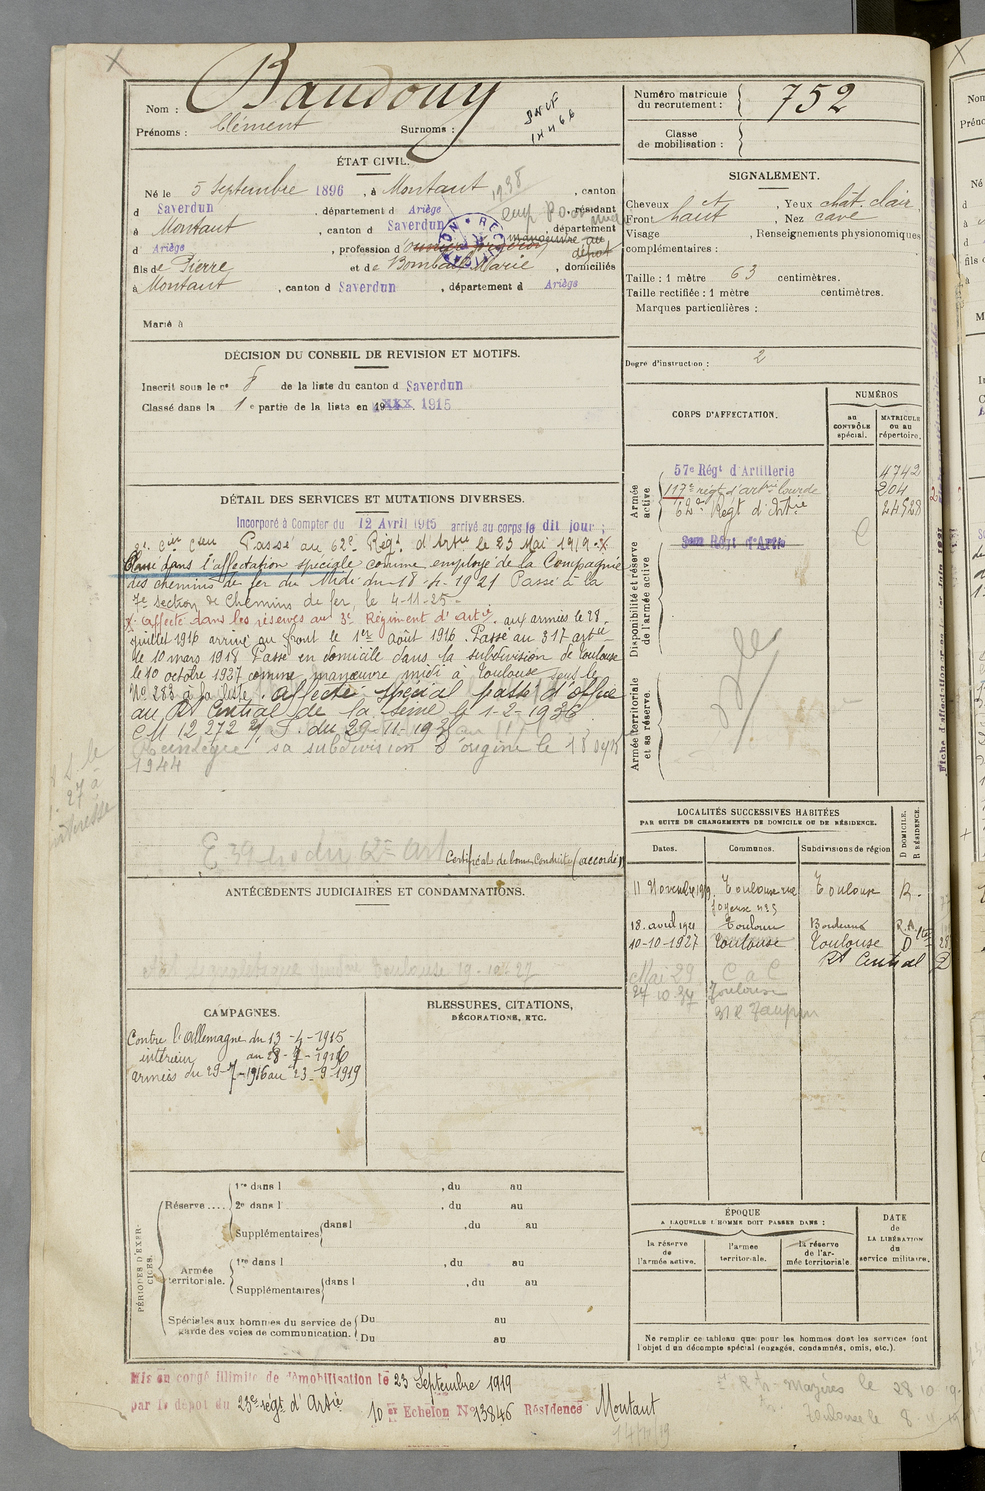 Nom : Baudouy
Prénoms : Clément Surnoms :
SNCF
Numéro matricule du recrutement : 752
Classe de mobilisation :
ÉTAT CIVIL.
Né le 5 Septembre 1896, à Montaut, canton
d Saverdun, département d Ariège, résidant
à Montaut, canton d Saverdun, département
d Ariège, profession d manœuvre au dépôt
fils de Pierre et de Bombail Marie, domiciliés
à Montaut, canton d Saverdun, département d Ariège
Marié à
SIGNALEMENT.
Cheveux ct, Yeux chât. clair
Front haut, Nez cave
Visage , Renseignements physionomiques
complémentaires :
Taille : 1 mètre 63 centimètres.
Taille rectifiée : 1 mètre centimètres.
Marques particulières :
Degré d'instruction : 2
DÉCISION DU CONSEIL DE REVISION ET MOTIFS.
Inscrit sous le n° 8 de la liste du canton d Saverdun
Classé dans la 1 e partie de la liste en 19XXX. 1915
CORPS D'AFFECTATION.
NUMÉROS
au CONTRÔLE spécial.
MATRICULE ou au répertoire.
Armée active
57e Régt d'Artillerie 4742
117e régt d'artrie lourde 204
62e Régt d'Artie 24528
Disponibilité et réserve de l'armée active
Armée territoriale et sa réserve.
DÉTAIL DES SERVICES ET MUTATIONS DIVERSES.
Incorporé à Compter du 12 Avril 1915 arrivé au corps le dit jour ;
Passé au 62e Régt d'Artrie le 23 Mai 1919.
Classé dans l'affectation spéciale comme employé de la Compagnie
des chemins de fer du Midi du 18-4-1921 Passé à la
7e section de Chemins de fer, le 4-11-25.
x affecté dans les réserves au 3e Régiment d'artie. aux armées le 28
juillet 1916 arrivé au front le 1er août 1916. Passé au 317 artie
le 10 mars 1918 Passé en domicile dans la subdivision de Toulouse
le 10 octobre 1927 comme manœuvre midi à Toulouse sous le
No 283 à la liste. affecté spécial passé d'office
au Rt Central de la Seine le 1-2-1936
CM 12272 du 29-11-1938
sa subdivision d'origine le 18
1944
Certificat de bonne conduite (accordé)
ANTÉCÉDENTS JUDICIAIRES ET CONDAMNATIONS.
LOCALITÉS SUCCESSIVES HABITÉES
PAR SUITE DE CHANGEMENTS DE DOMICILE OU DE RÉSIDENCE.
Dates. Communes. Subdivisions de région D DOMICILE. R RÉSIDENCE.
11 Novembre 1919 Toulouse rue Joyeuse n° 5 Toulouse R.
18. avril 1921 Toulouse Bordeaux R.A.
10-10-1927 Toulouse Toulouse D
Rt Central
Mai 29 C a C
27 10 37 Toulouse
CAMPAGNES.
Contre l'Allemagne du 13-4-1915
intérieur au 28-7-1916
armées du 29-7-1916 au 23-9-1919
BLESSURES, CITATIONS,
DÉCORATIONS, ETC.
PÉRIODES D'EXERCICES.
Réserve .... 1re dans l , du au
2e dans l , du au
Supplémentaires dans l , du au
Armée territoriale. 1re dans l , du au
Supplémentaires dans l , du au
Spéciales aux hommes du service de garde des voies de communication. Du au
Du au
ÉPOQUE
A LAQUELLE L'HOMME DOIT PASSER DANS :
la réserve de l'armée active.
l'armée territoriale.
la réserve de l'armée territoriale.
DATE de LA LIBÉRATION du service militaire.
Ne remplir ce tableau que pour les hommes dont les services font
l'objet d'un décompte spécial (engagés, condamnés, omis, etc.).
Mis en congé illimité de démobilisation le 23 Septembre 1919
par le dépôt du 23e régt d'Artie 10 er Echelon No 13846 Résidence Montaut
Mazères le 28 10 19
Toulouse le